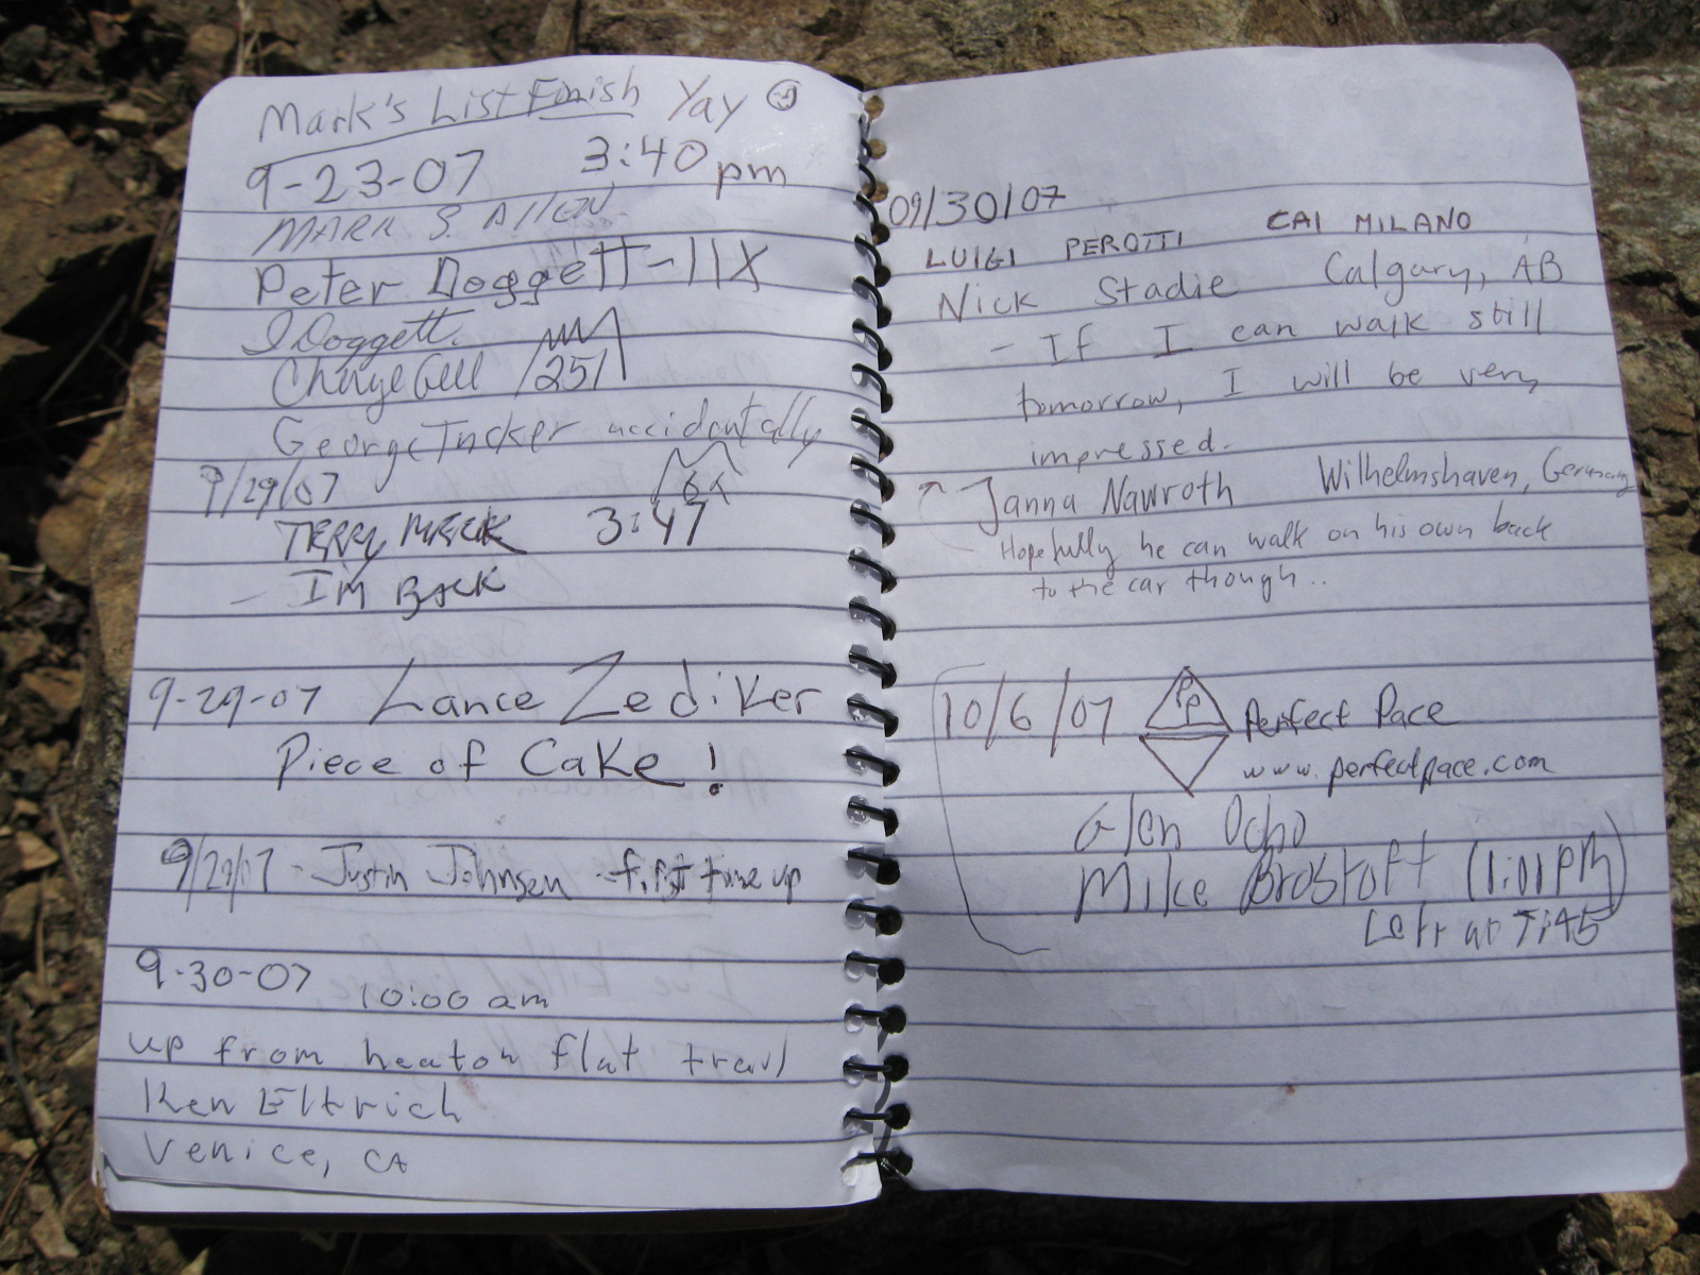 Mark's List Finish Yay
9-23-07 3:40 pm
MARK S. AllEN
Peter Doggett-11X
Doggett
251
George Tucker accidentally
9/29/07 6x
TERRY 3:47
- I'M BACK
9-29-07 Lance Zediker
Piece of CaKe!
9/29/07 - Justin Johnsen - first time up
9-30-07 10:00 am
up from heaton flat trail
Ken Eltrich
Venice, CA
09/30/07
LUIGI PEROTTI CAI MILANO
Nick Stadie Calgary, AB
- If I can walk still
tomorrow, I will be very
impressed.
Janna Nawroth Wilhelmshaven, Germany
Hopefully he can walk on his own back
to the car though..
10/6/07 PP Perfect Pace
www.perfectpace.com
Glen Ocho
Mike Brostoff (1:01 PM)
Left at 7:45